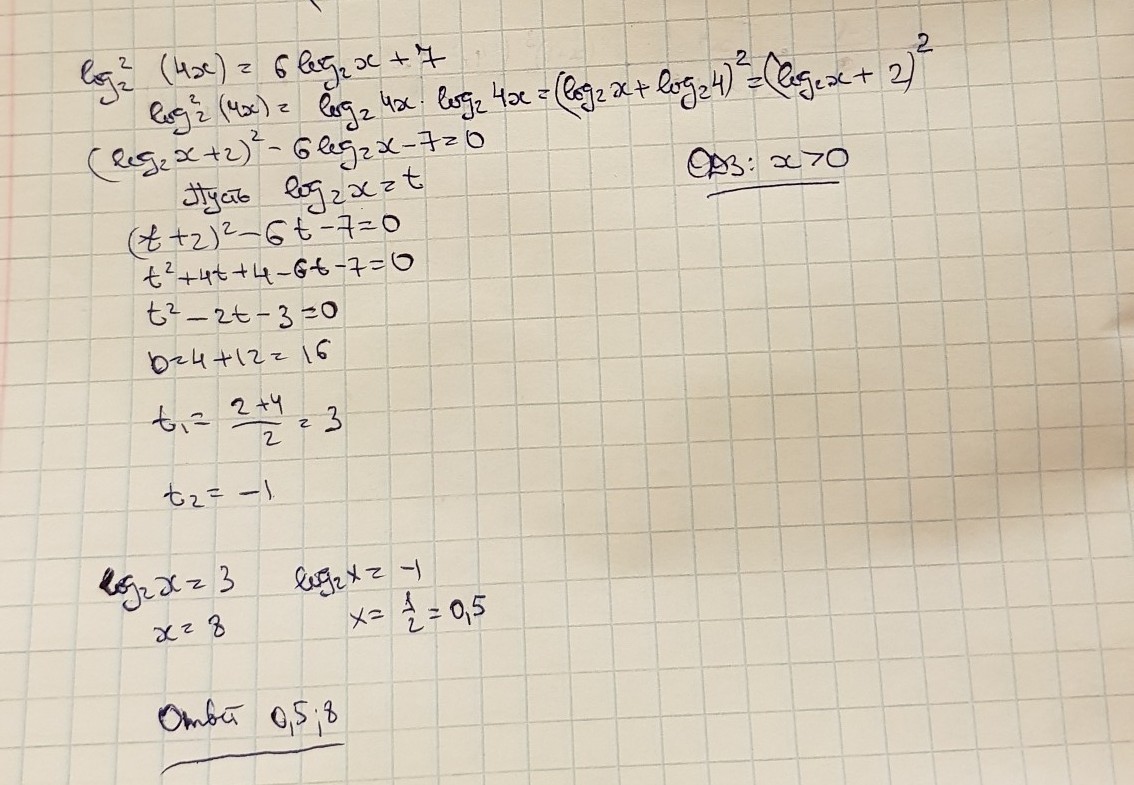 log₂² (4x) = 6 log₂x + 7
log₂² (4x) = log₂ 4x · log₂ 4x = (log₂x + log₂4)² = (log₂x + 2)²
(log₂x + 2)² - 6log₂x - 7 = 0
ОДЗ: x > 0
Пусть log₂x = t
(t + 2)² - 6t - 7 = 0
t² + 4t + 4 - 6t - 7 = 0
t² - 2t - 3 = 0
D = 4 + 12 = 16
t₁ = (2+4)/2 = 3
t₂ = -1
log₂x = 3 log₂x = -1
x = 8 x = 1/2 = 0,5
Ответ 0,5; 8